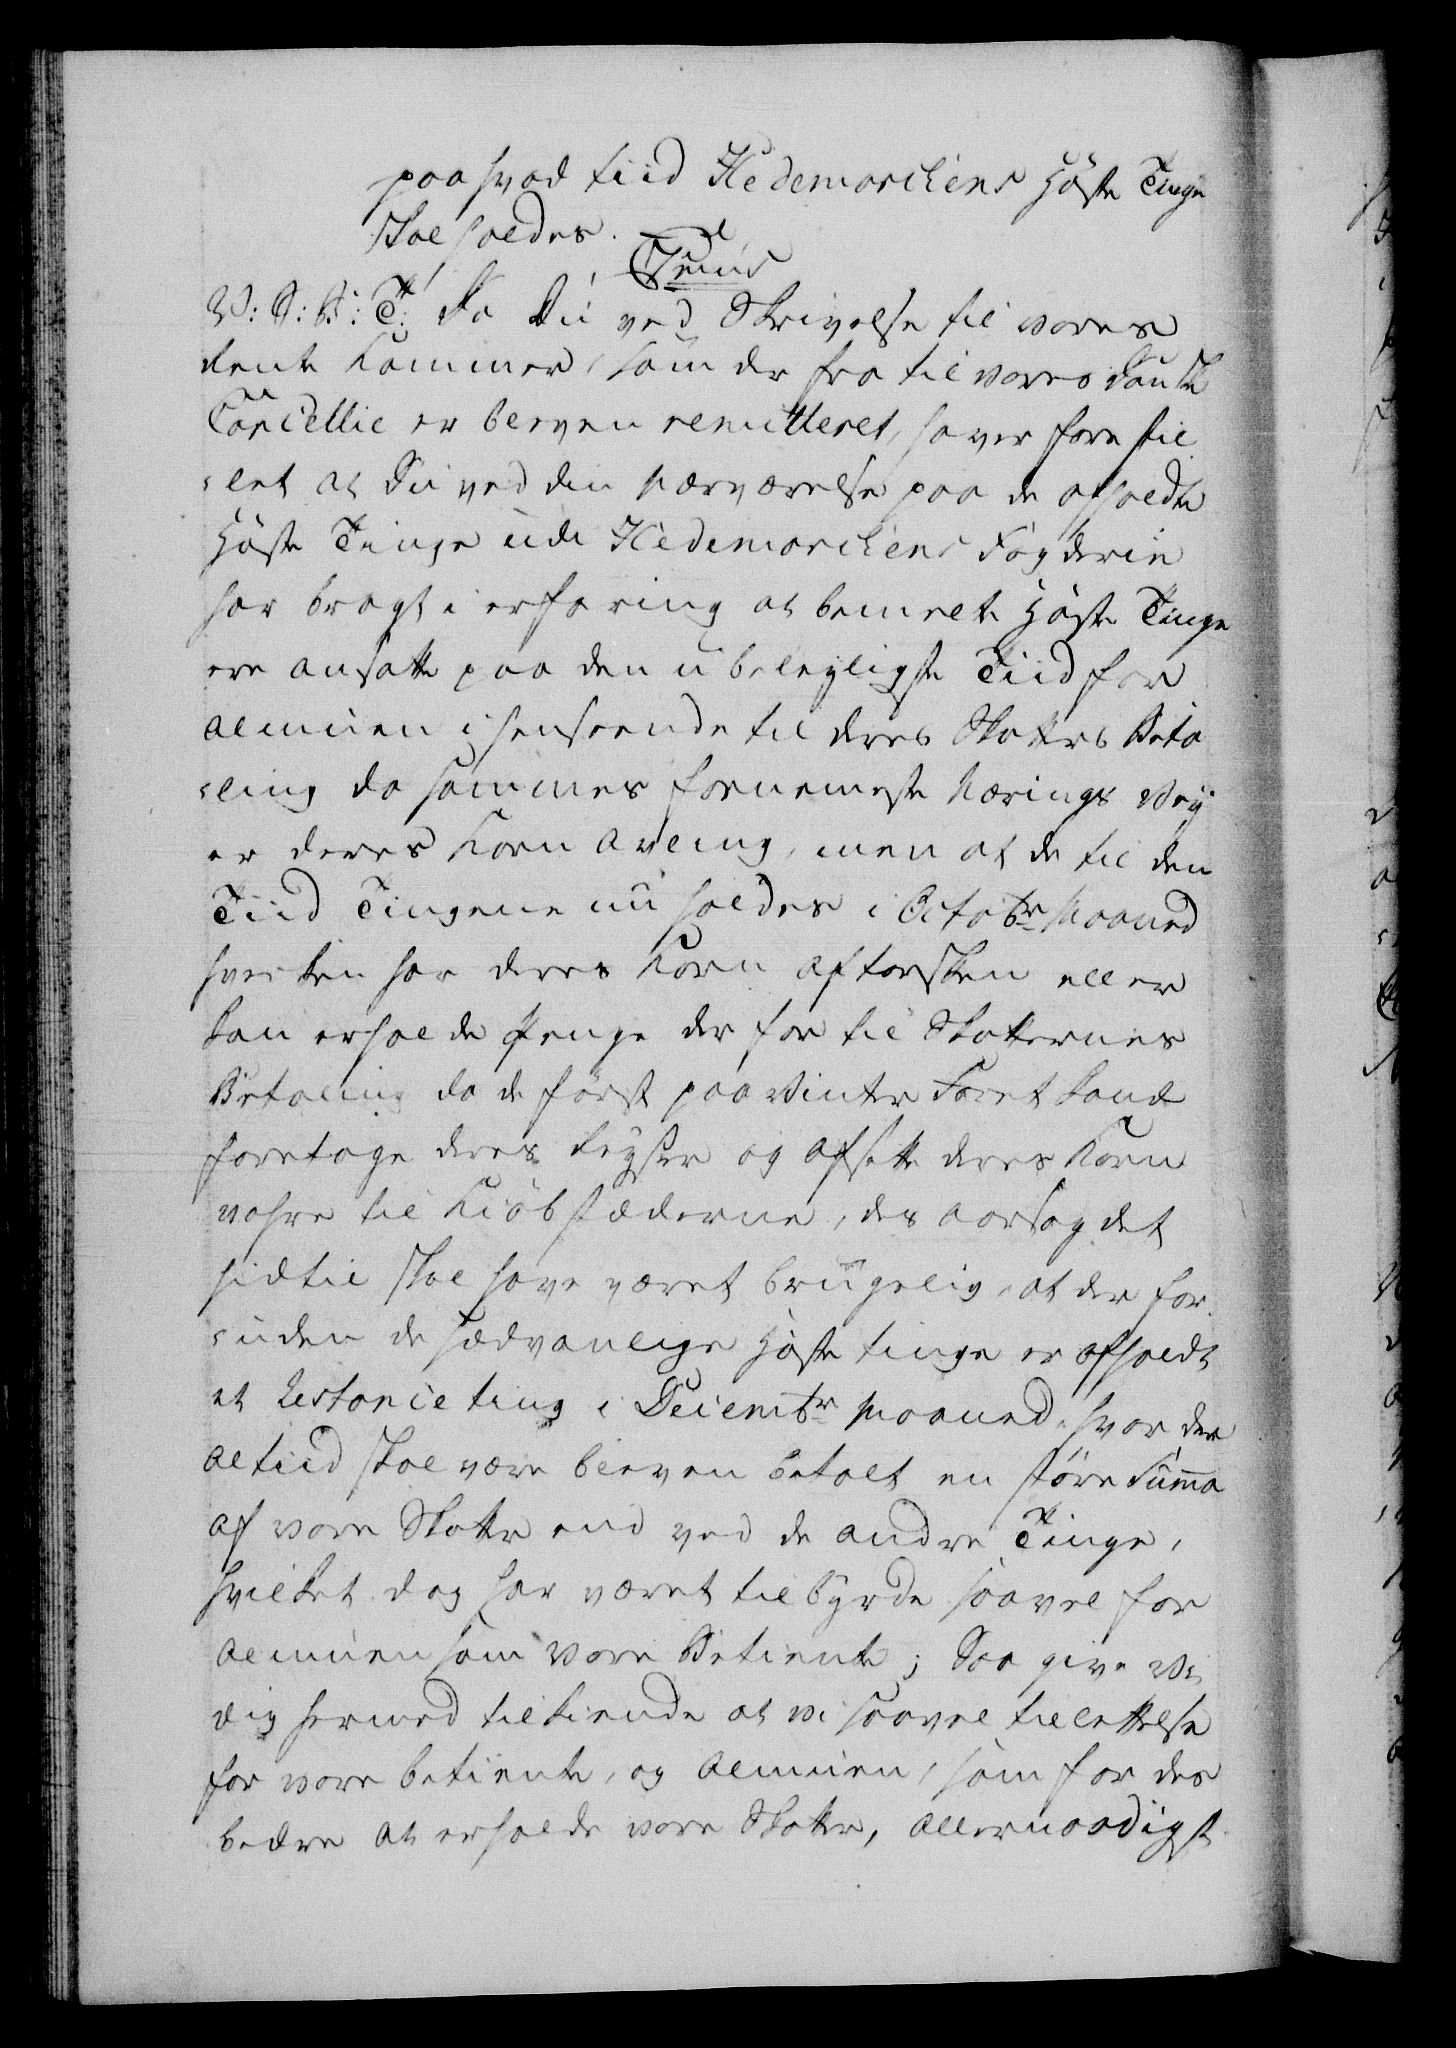 paa hvad tiid Hedemarchens Höste Tinge
skal holdes.
V: G: B: T: Da Du ved Skrivelse til vores
Rente Kammer, som der fra til vores danske
Cancellie er bleven remitteret, haver forestil
-let at Du ved din Nærværelse paa de afholdte
Höste Tinge udi Hedemarchens Fogderie
har bragt i erfaring at bemelte Höste Tinge
ere ansatte paa den ubeleyligste Tiid for
Almuen i henseende til deres Skatters Beta
-ling da sammes fornemeste Nærings Vey
er deres Korn Avling, men at de til den
Tiid Tingene nu holdes i Octobr Maaned
hverken har deres Korn aftorsken eller
kan erholde Penge der for til Skatternes
Betaling da de först paa Vinter Föret kand
foretage deres Reyser og afsette deres Korn
vahre til Kiöbstæderne, des aarsag det
hidtil skal have været brugelig, at der for
-uden de sædvanlige Höste tinge er afholdt
et Restancie ting i Decembr Maaned, hvor der
altiid skal være bleven betalt en störe Summa
af vore Skatter end ved de andre Tinge,
hvilket dog har været til byrde saavel for
Almuen som vore Betiente; Saa give Vi
dig hermed tilkiende at vi saavel til lettelse
for vore betiente, og Almuen, som for des
bedre at erholde vore Skatter, allernaadigst